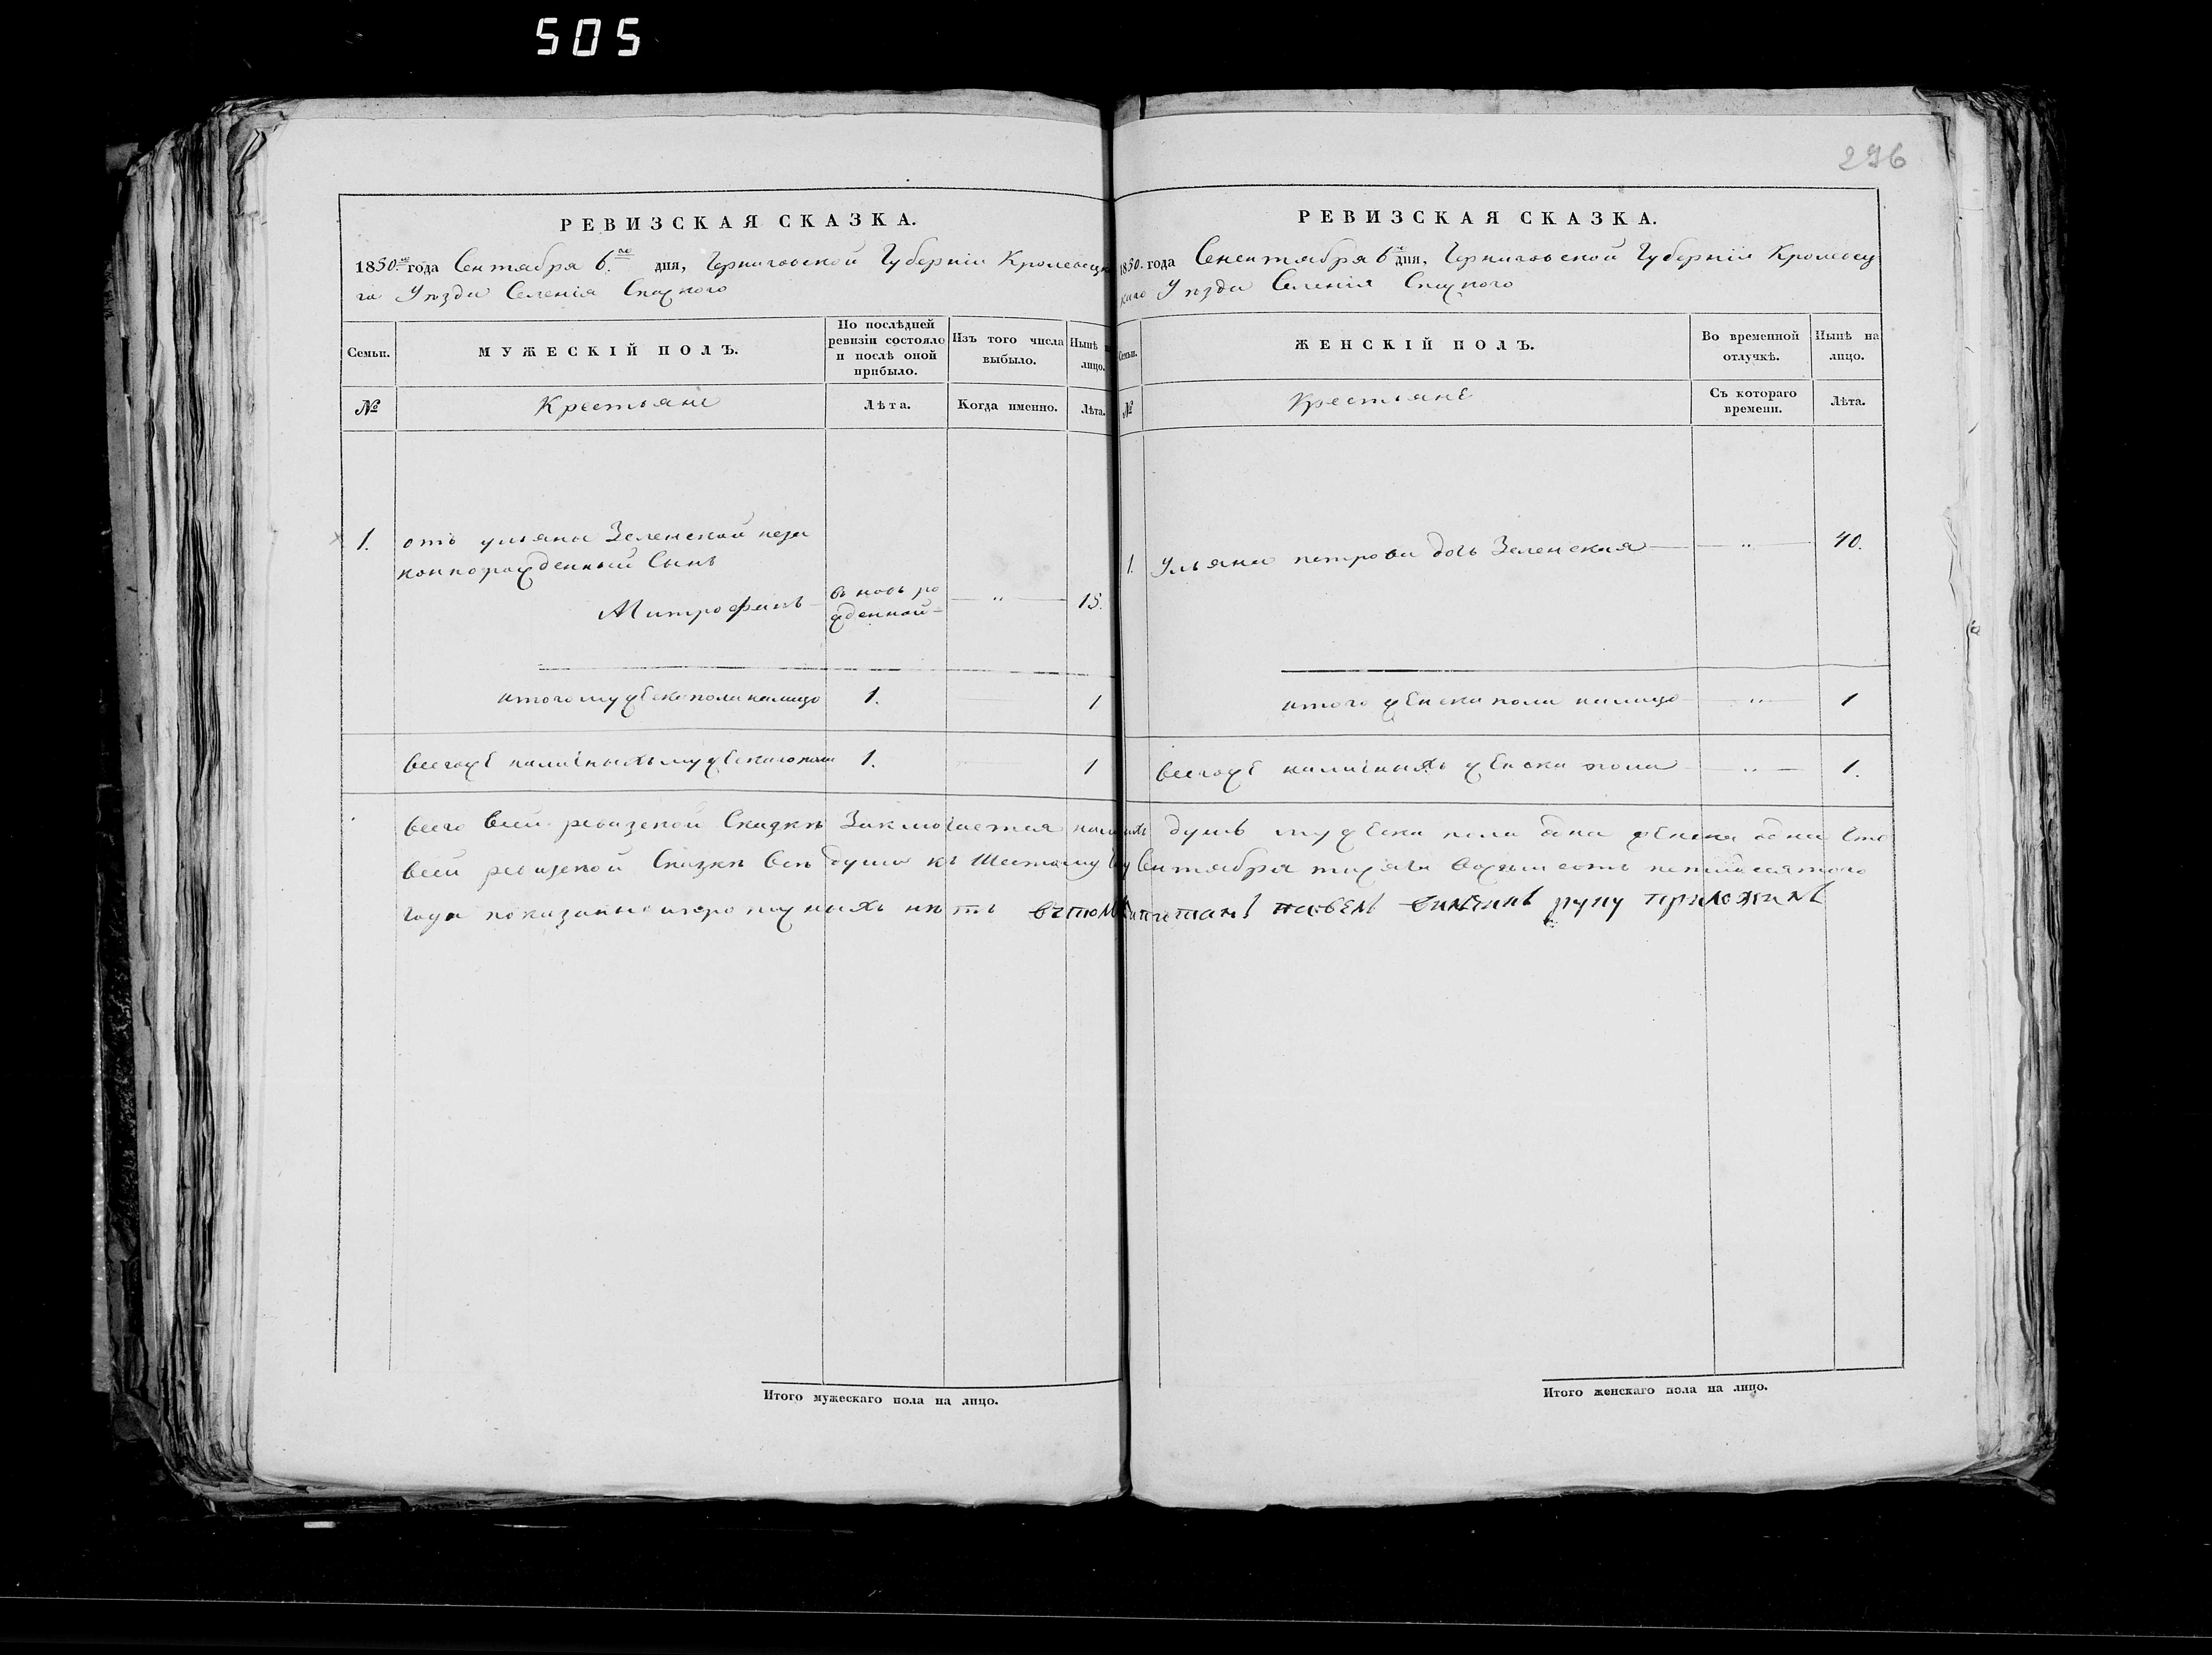 505
296
РЕВИЗСКАЯ СКАЗКА.
1850.го года Сентября 6.го дня, Черниговской Губерніи Кролевецка
го Уѣзда Селенія Спаского
Семьи.
МУЖЕСКІЙ ПОЛЪ.
По послѣдней ревизіи состояло и послѣ оной прибыло.
Изъ того числа выбыло.
Нынѣ на лицо.
№
Крестьяне
Лѣта.
Когда именно.
Лѣта.
1. отъ ульяны Зеленской неза
коннорожденный Сынъ
Митрофанъ вновь ро „ 15.
жденной
итого мужеска пола налицо 1. 1
всегоже наличныхъ мужескаго пола 1. 1
РЕВИЗСКАЯ СКАЗКА.
1850. года Сенентября 6 дня, Черниговской Губерніи Кролевец
каго Уѣзда Селенія Спаского
Семьи.
ЖЕНСКІЙ ПОЛЪ.
Во временной отлучкѣ.
Нынѣ на лицо.
№
Крестьяне
Съ котораго времени.
Лѣта.
1. Ульяна петрова дочь Зеленская „ 40.
итого женска пола налицо „ 1
всегоже наличныхъ женска пола „ 1.
всего всей ревизской Сказкѣ Заключается душъ мужеска пола одна женска одна что
всей ревизской Сказкѣ все души къ Шестому Сентября тысяча восемь сотъ пятидесятого
года показаны и пропущныхъ нѣтъ втомъ павелъ руку приложилъ
Итого мужескаго пола на лицо.
Итого женскаго пола на лицо.